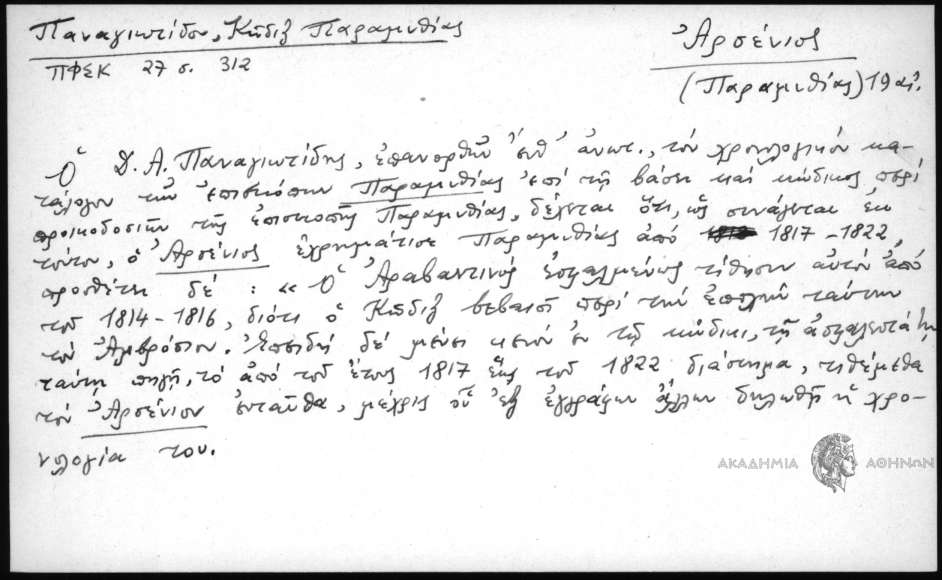 Παναγιωτίδου, Κῶδιξ Παραμυθίας
ΠΦΣΚ 27 σ. 312
Ἀρσένιος
(Παραμυθίας) 19 αἰ.
Ὁ Δ. Α. Παναγιωτίδης, ἐπανορθῶν ἐνθ' ἀνωτ., τόν χρονολογικόν κα-
τάλογον τῶν ἐπισκόπων Παραμυθίας ἐπί τῇ βάσει καί κώδικος περί
προικοδοσιῶν τῆς ἐπισκοπῆς Παραμυθίας, δέχεται ὅτι, ὡς συνάγεται ἐκ
τούτου, ὁ Ἀρσένιος ἐχρημάτισε Παραμυθίας ἀπό 1817-1822,
προσθέτει δέ : « Ὁ Ἀραβαντινός ἐσφαλμένως τίθησιν αὐτόν ἀπό
τοῦ 1814-1816, διότι ὁ Κῶδιξ βεβαιοῖ περί τήν ἐποχήν ταύτην
τόν Ἀμβρόσιον. Ἐπειδή δέ μένει κενόν ἐν τῷ κώδικι, τῇ ἀσφαλεστάτῃ
ταύτῃ πηγῇ, τό ἀπό τοῦ ἔτους 1817 ἕως τοῦ 1822 διάστημα, τιθέμεθα
τόν Ἀρσένιον ἐνταῦθα, μέχρις οὗ ἐξ ἐγγράφων ἄλλων δηλωθῇ ἡ χρο-
νολογία του.
ΑΚΑΔΗΜΙΑ ΑΘΗΝΩΝ